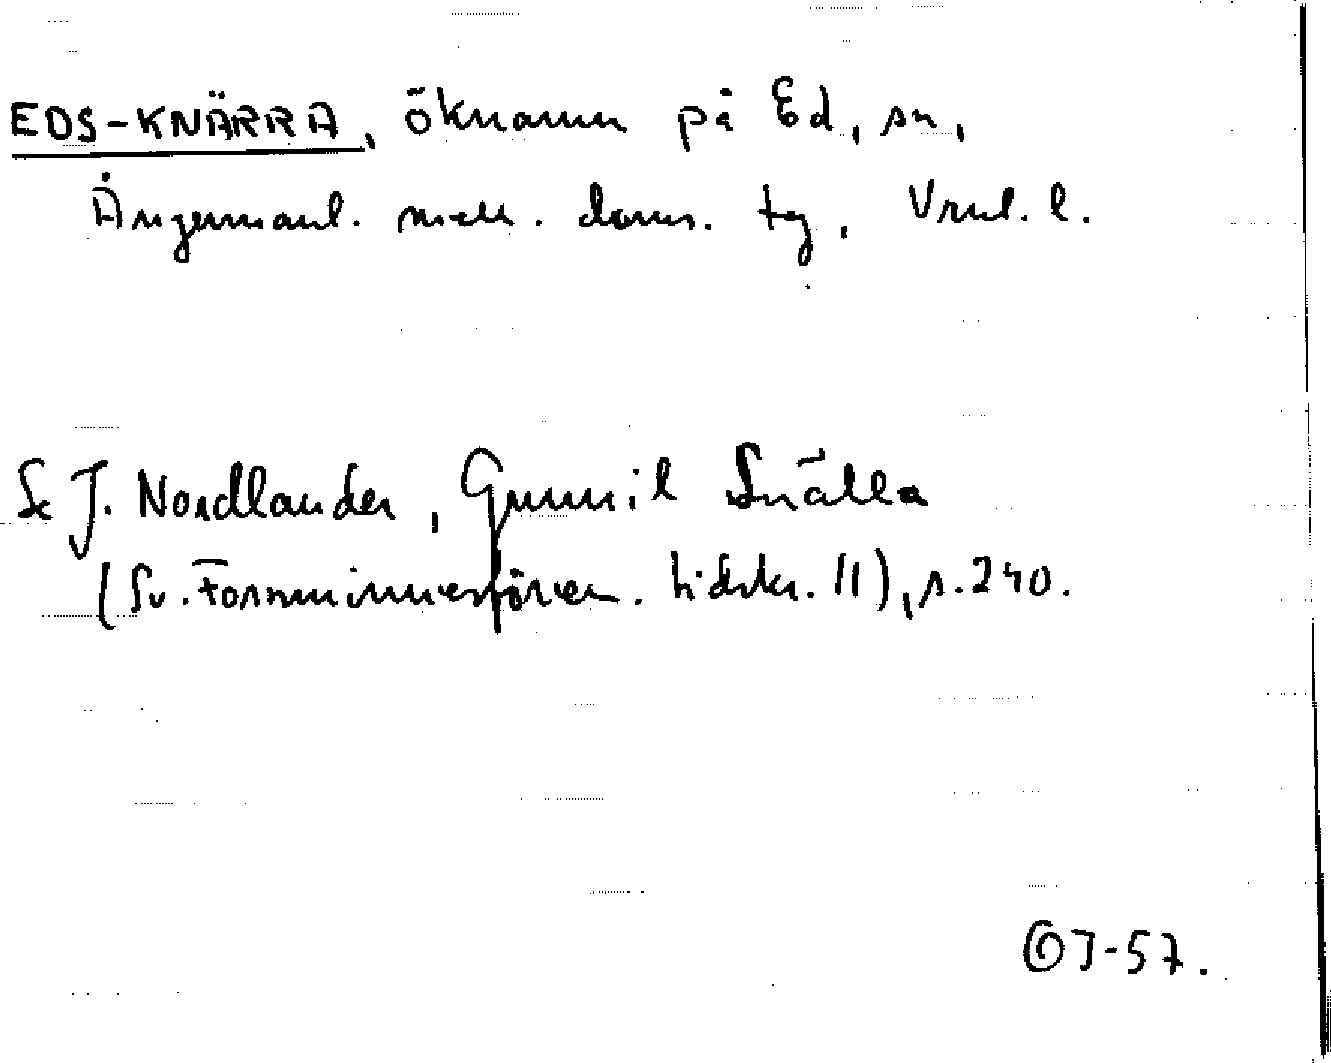 EDS-KNÄRRA, öknamn på Ed, sn,
Ångermanl. mell. doms. tg, Vnl. l.
Se J. Nordlander, Gunnil Snälla
(Sv. Fornminnesfören. tidskr. 11), s. 240.
OJ-57.